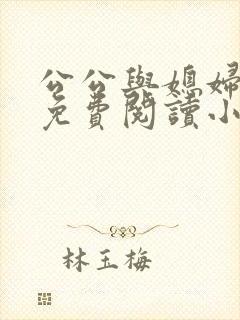 公公與媳婦
免費閱讀小
林玉梅